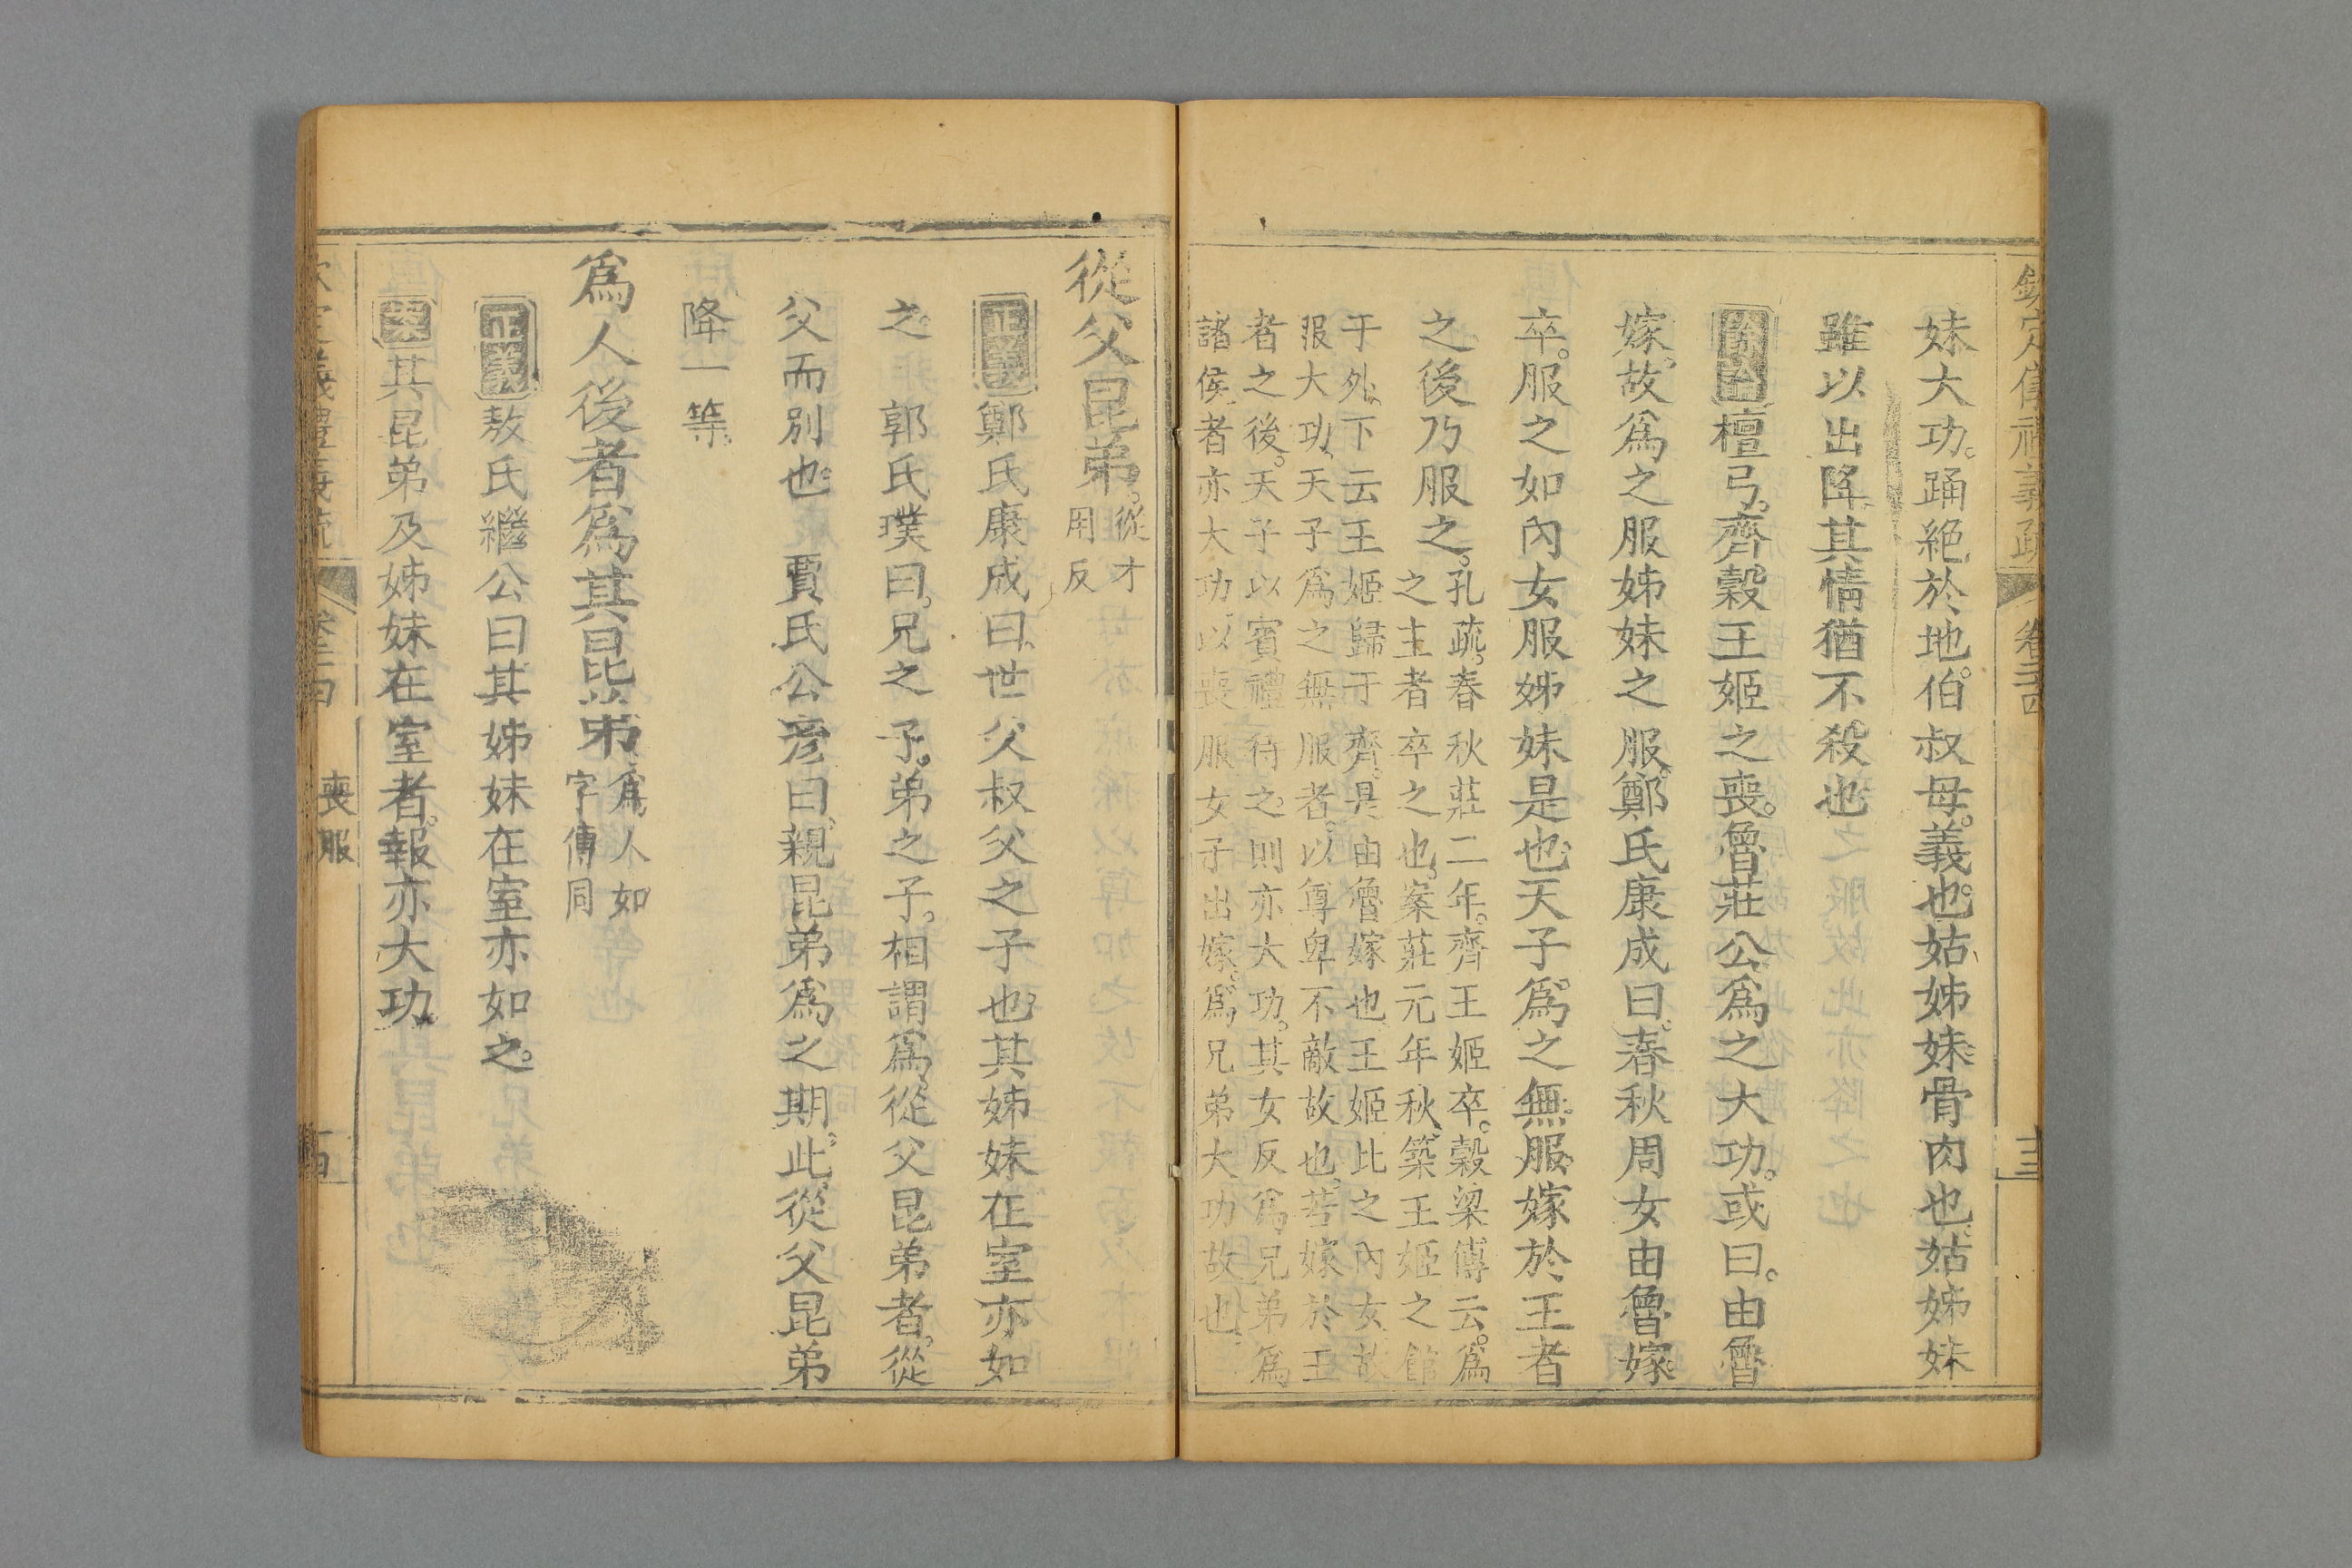 妹大功。踊絕於地。伯叔母。義也。姑姊妹。骨肉也。姑姊妹
雖以出降。其情猶不殺也
餘論檀弓。齊穀王姬之喪。魯莊公爲之大功。或曰。由魯
嫁。故爲之服姊妹之服。鄭氏康成曰。春秋周女由魯嫁
卒。服之如內女服姊妹是也。天子爲之無服。嫁於王者
之後乃服之。
孔疏。春秋莊二年。齊王姬卒。穀梁傳云。爲
之主者卒之也。案莊元年秋。築王姬之館
于外。下云王姬歸于齊。是由魯嫁也。王姬比之內女。故
服大功。天子爲之無服者。以尊卑不敵故也。若嫁於王
者之後。天子以賓禮待之。則亦大功。其女反爲兄弟爲
諸侯者亦大功。以喪服女子出嫁。爲兄弟大功故也
從父昆弟。
從才
用反
正義鄭氏康成曰。世父叔父之子也。其姊妹在室亦如
之。 郭氏璞曰。兄之子。弟之子。相謂爲從父昆弟者。從
父而別也。 賈氏公彥曰。親昆弟爲之期。此從父昆弟
降一等。
爲人後者爲其昆弟
爲人如
字傳同
正義敖氏繼公曰其姊妹在室亦如之。
案其昆弟及姊妹在室者。報亦大功
喪服